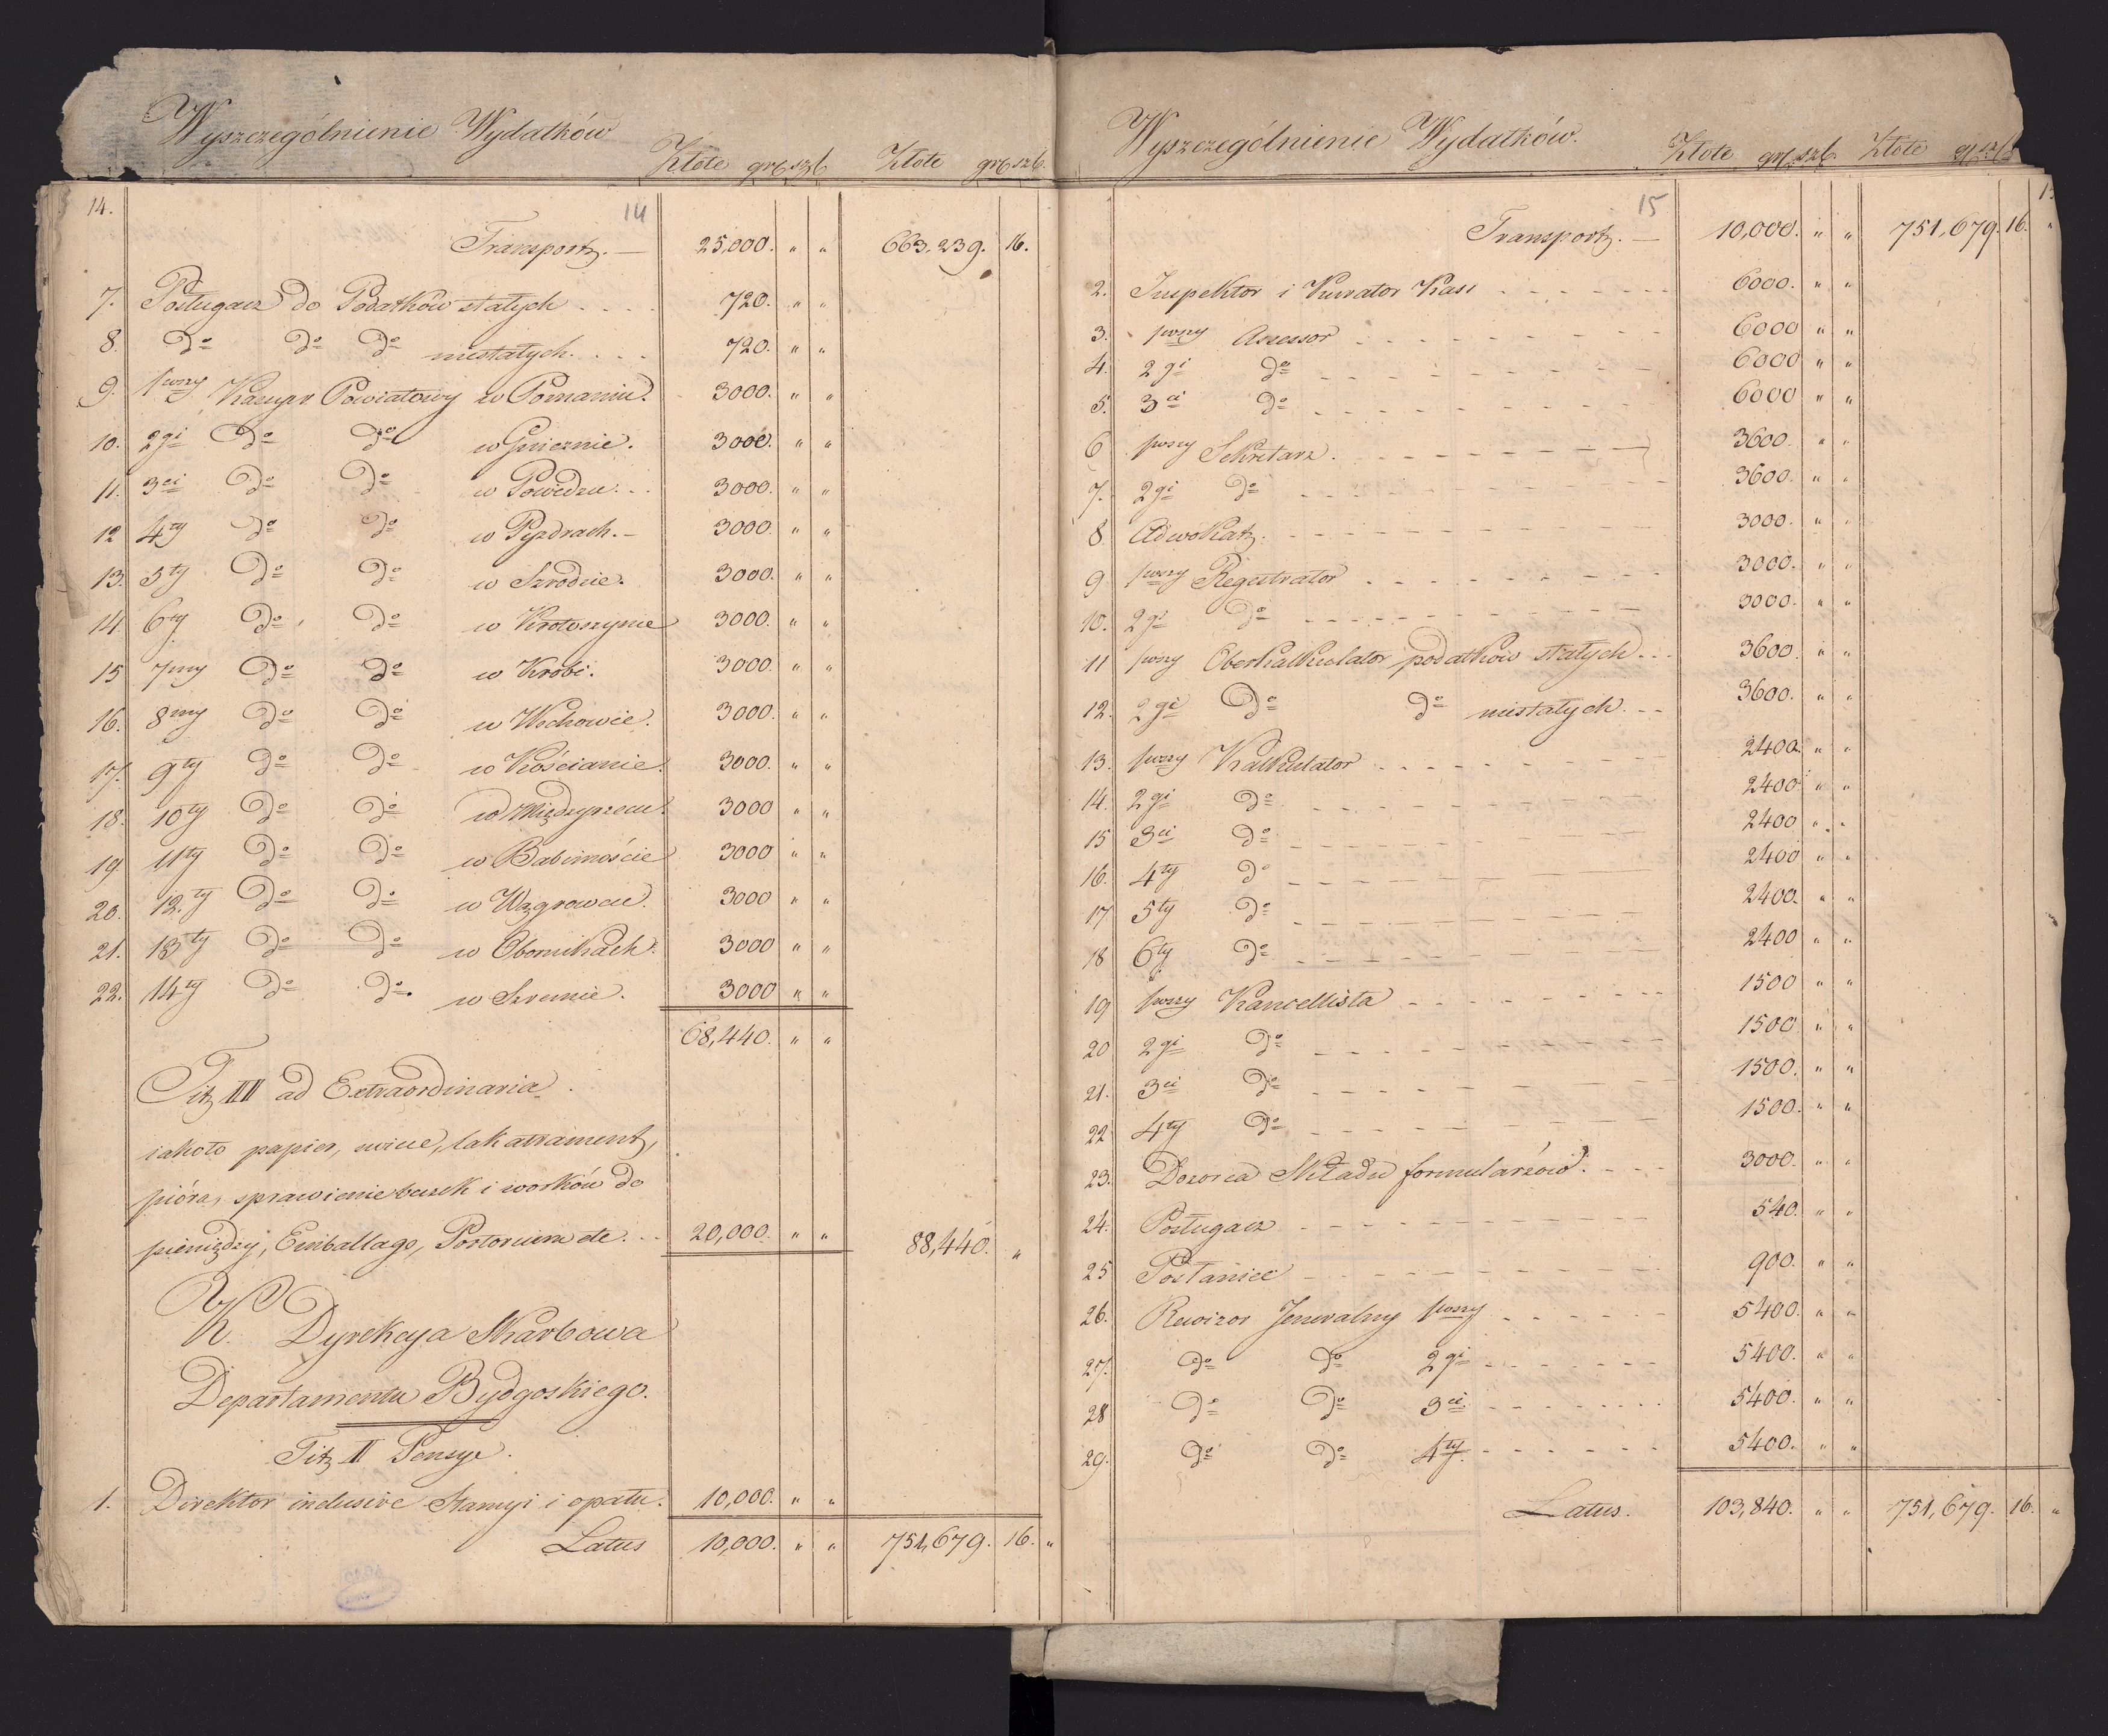 Wyszczególnienie Wydatków Złote grosz Złote grosz
14. 14
Transport. — 25,000. " " 663,239. 16.
7. Posługacz do Podatków stałych . . . . 720. " "
8. do do do niestałych. . . . 720. " "
9. 1wszy Kassyer Powiatowy w Poznaniu. 3000. " "
10. 2gi do do w Gnieznie. 3000. " "
11. 3ci do do w Powidzu. . . 3000. " "
12 4ty do do w Pyzdrach. - 3000. " "
13. 5ty do do w Szrodzie. 3000. " "
14. 6ty do do w Krotoszynie 3000. " "
15 7my do do w Krobi. 3000. " "
16. 8my do do w Wschowie. 3000. " "
17. 9ty do do w Kościanie. 3000. " "
18. 10ty do do w Międzyrzecu. 3000 " "
19. 11ty do do w Babimoście 3000 " "
20. 12.ty do do w Wągrowcu. 3000 " "
21. 13ty do do w Obornikach. 3000 " "
22. 14ty do do w Szremie. 3000 " "
68,440. " "
Tit IIII ad Extraordinaria
iakoto papier, świece, lak atrament,
pióra, sprawienie beczek i worków do
pieniędzy, Emballage, Portorium etc. . . 20,000. " " 88,440. "
Dyrekcya Skarbowa
Departamentu Bydgoskiego.
Tit II Pensye.
1. Direktor inclusive Stancyi i opału. 10,000. " "
Latus 10,000. " " 751,679. 16. "
Wyszczególnienie Wydatków. Złote grosz Złote
15
Transport. — 10,000. " " 751,679. 16. "
2. Inspektor i Kurator Kass 6000. " "
3. 1wszy Assessor 6000 " "
4. 2gi do 6000 " "
5. 3ci do 6000 " "
6 1wszy Sekretarz. 3600. " "
7. 2gi do 3600. " "
8 Adwokat. 3000. " "
9 1wszy Registrator 3000. " "
10. 2gi do 3000. " "
11 1wszy Oberkalkulator podatków stałych . . . 3600. " "
12. 2gi do do niestałych. - - 3600. " "
13. 1wszy Kalkulator 2400. " "
14. 2gi do 2400 " "
15 3ci do 2400 " "
16. 4ty do 2400 " "
17 5ty do 2400. " "
18 6ty do 2400 " "
19 1wszy Kancellista 1500 " "
20 2gi do 1500 " "
21. 3ci do 1500. " "
22 4ty do 1500. " "
23. Dozorca Składu formularzów. 3000. " "
24. Posługacz 540. " "
25 Posłaniec 900. " "
26. Rewizor Jeneralny 1wszy 5400. " "
27. do do 2gi 5400. " "
28 do do 3ci. 5400. " "
29. do do 4ty. 5400. " "
Latus. 103,840. " " 751,679. 16. "